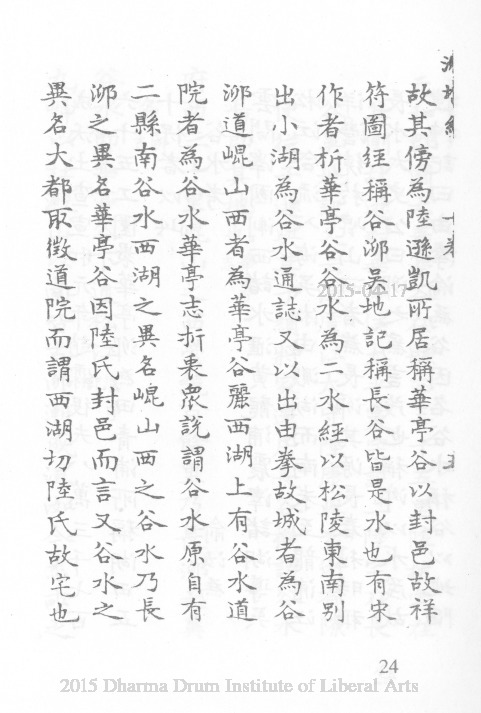 故其傍為陸遜凱所居稱華亭谷以封邑故祥
符圖經稱谷泖吳地記稱長谷皆是水也有宋
作者析華亭谷谷水為二水經以松陵東南別
出小湖為谷水通誌又以出由拳故城者為谷
泖道崐山西者為華亭谷麗西湖上有谷水道
院者為谷水華亭志折衷眾說謂谷水原自有
二縣南谷水西湖之異名崐山西之谷水乃長
泖之異名華亭谷因陸氏封邑而言又谷水之
異名大都取徵道院而謂西湖切陸氏故宅也
24
2015-04-17
2015 Dharma Drum Institute of Liberal Arts